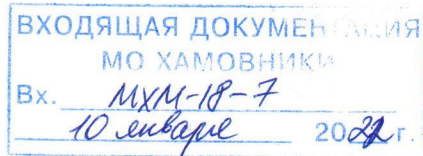 ВХОДЯЩАЯ ДОКУМЕНТАЦИЯ
МО ХАМОВНИКИ
Вх. МХМ-18-7
10 января 2022 г.